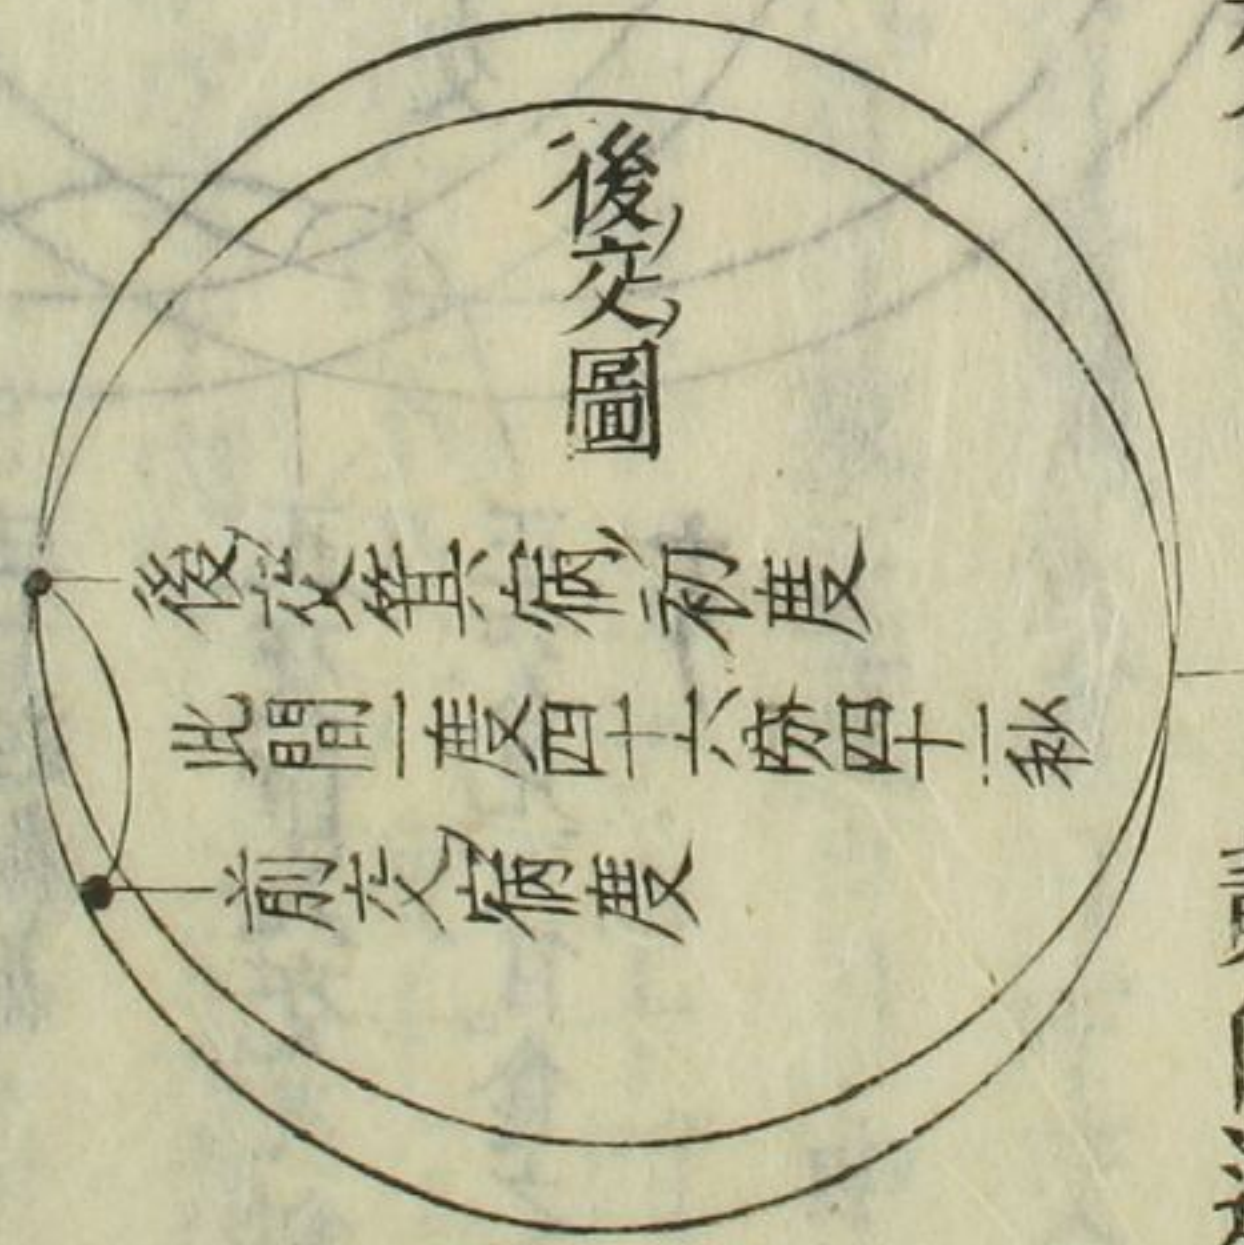 後交圖
後交箕宿初度
此間一度四十六分四十一秒
前交宿度